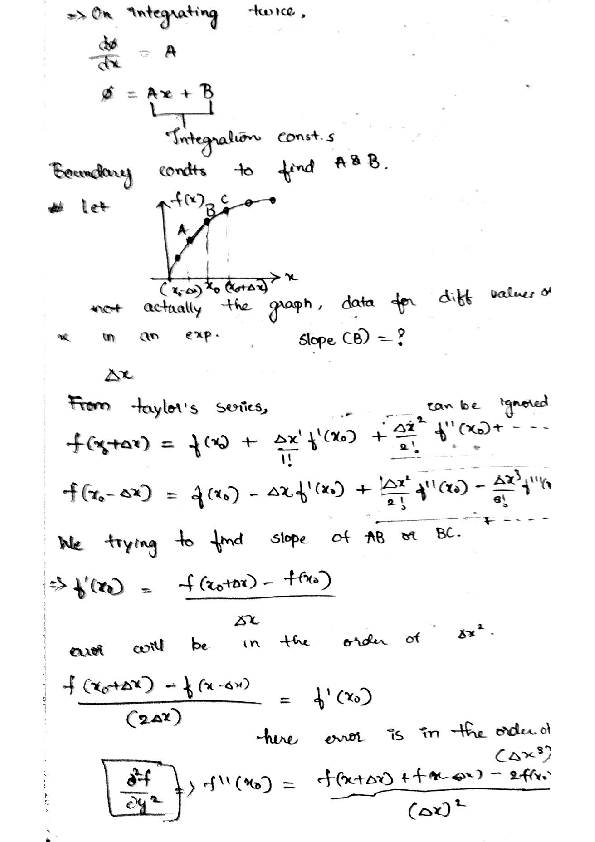 => On integrating twice,
dø/dx = A
ø = Ax + B
Integration const.s
Boundary condts to find A & B.
# let
f(x)
A B C
(x₀-Δx) x₀ (x₀+Δx) x
not actually the graph, data for diff values of
x in an exp. Slope (B) = ?
Δx
From taylor's series, can be ignored
f(x₀+Δx) = f(x₀) + Δx'/1! f'(x₀) + Δx²/2! f''(x₀) + ---
f(x₀-Δx) = f(x₀) - Δx f'(x₀) + Δx²/2! f''(x₀) - Δx³/3! f''(x
+ ----
We trying to find slope of AB or BC.
=> f'(x₀) = f(x₀+Δx) - f(x₀) / Δx
error will be in the order of Δx².
f(x₀+Δx) - f(x-Δx) / (2Δx) = f'(x₀)
here error is in the order of
(Δx³)
∂²f/∂y² => f''(x₀) = f(x+Δx) + f(x-Δx) - 2f(x₀ / (Δx)²